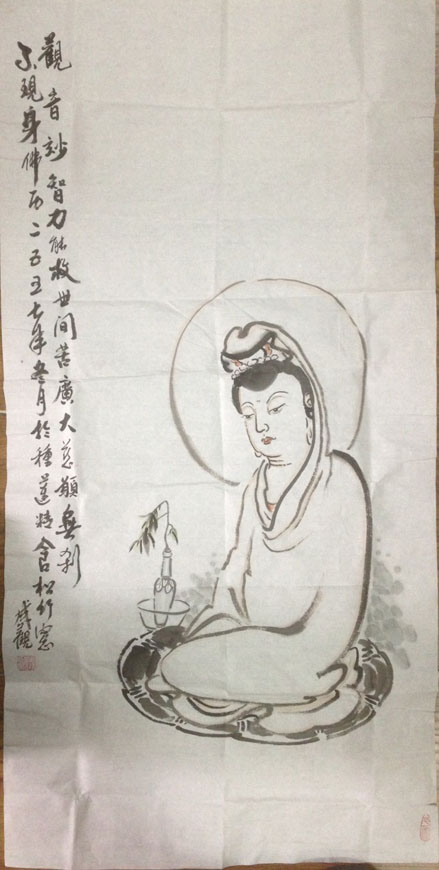 觀音妙智力能救世間苦廣大慈願無刹
不現身佛历二五五七年月於種蓮精舍松竹窓
成觀